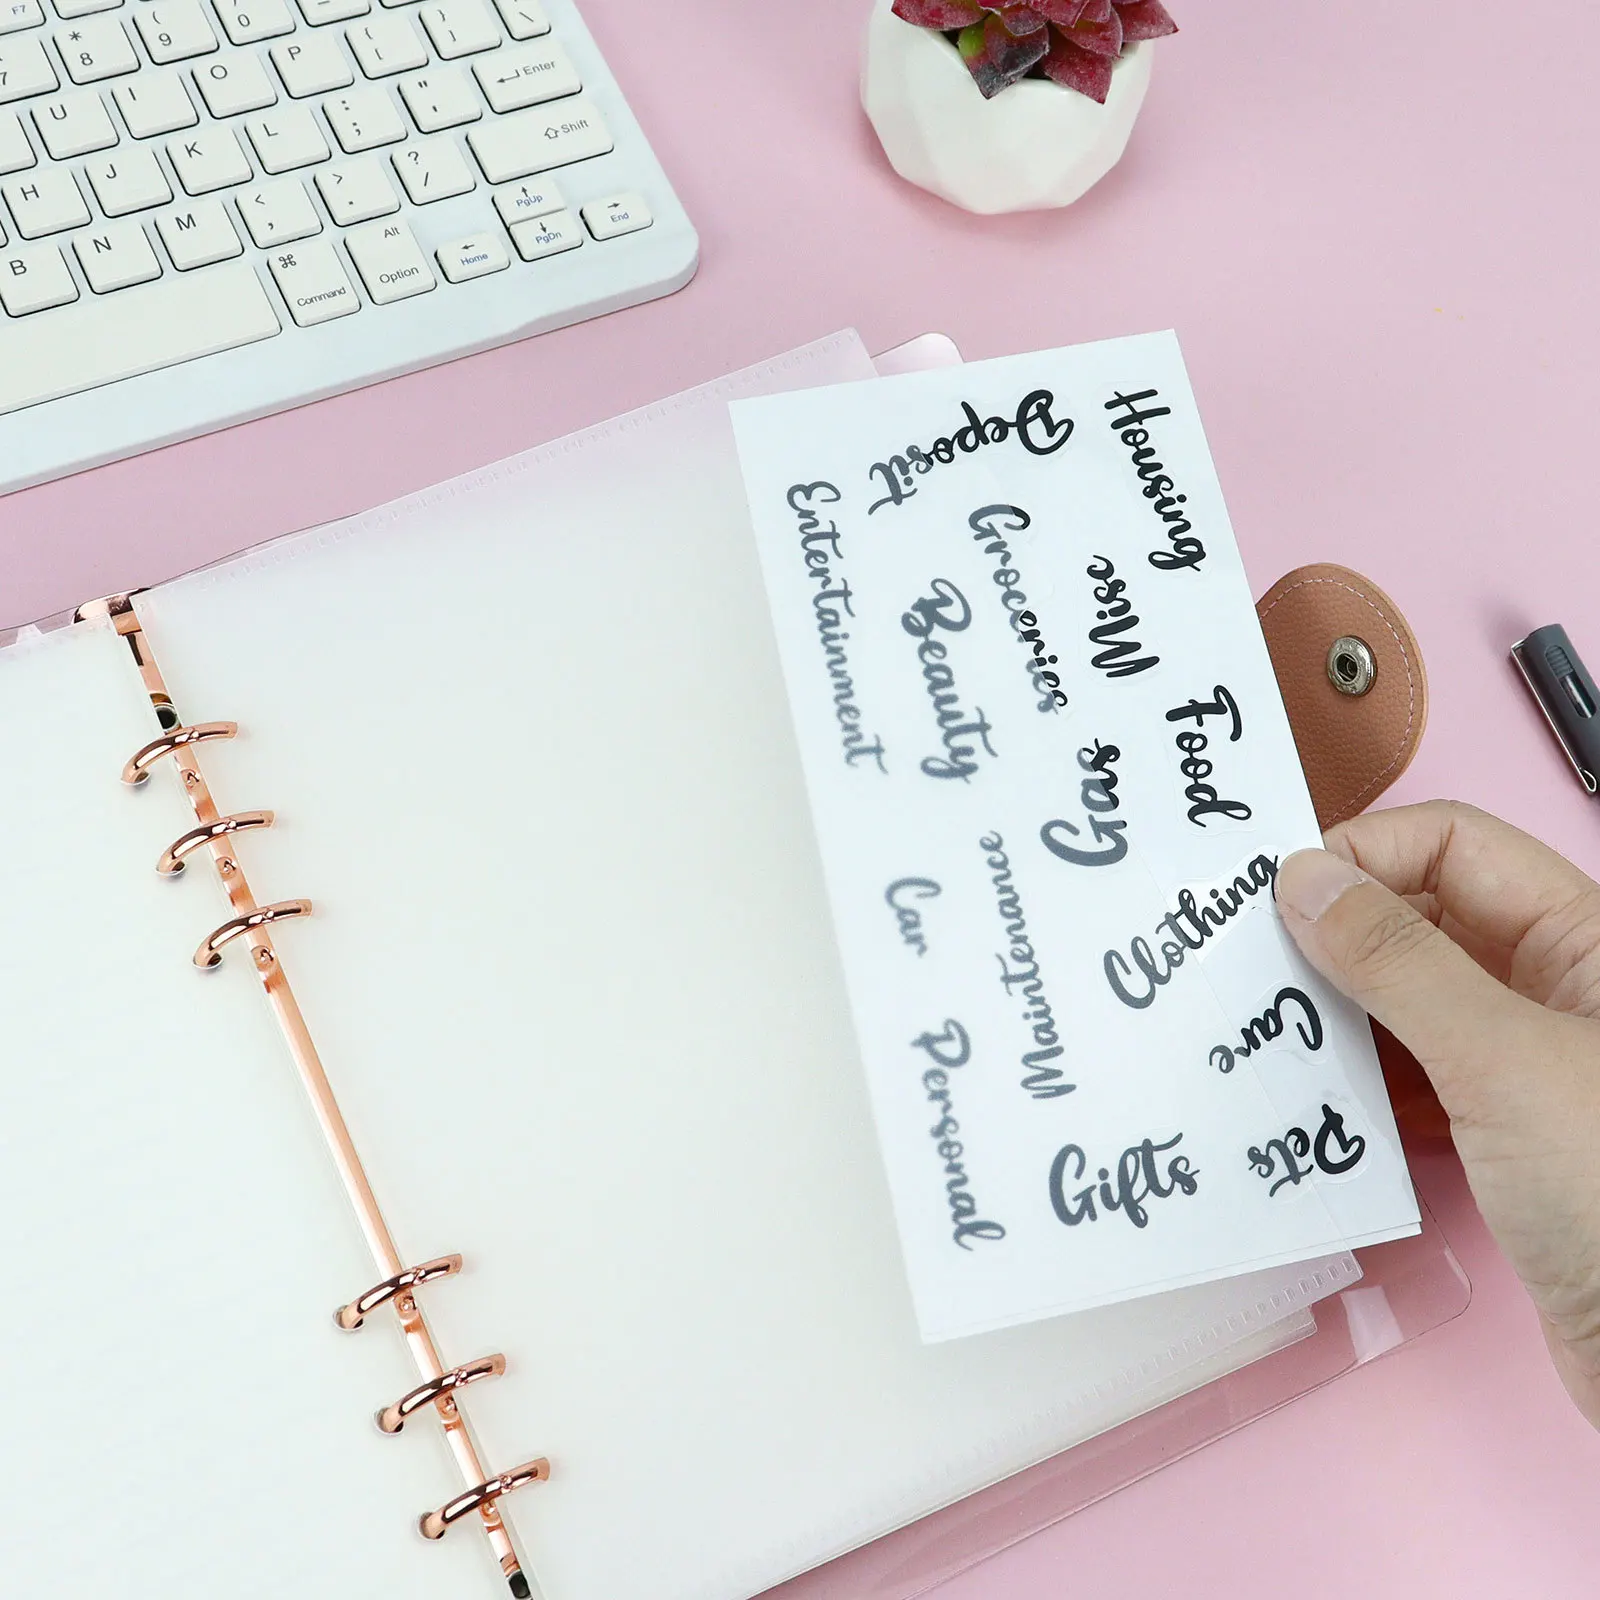 F7
*
8
(
9
)
0
{
[
}
]
7
U
I
O
P
:
;
"
'
Enter
H
J
K
L
?
/
Shift
B
N
M
<
,
>
.
PgUp
PgDn
End
Home
Command
Alt
Option
Housing
Deposit
Entertainment
Groceries
Misc
Beauty
Food
Gas
Maintenance
Car
Clothing
Care
Personal
Gifts
Pets